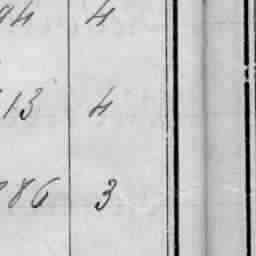 94 4
13 4
86 3